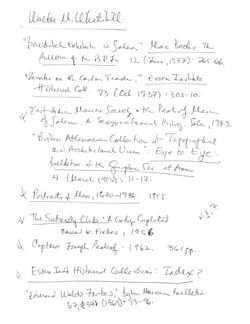 Walter M. Whitehill.
Exhibition in Salem," More Books: The
of the B.P.L. 12 (June, 1937): 265-66.
"Remarks on the Canton Trade," Essex Institute
Historical Coll. 73 (Oct 1937): 303-10.
East India Marine Society & the Peabody Museum
of Salem: A Sesquicentennial History. Salem, 1949.
"Boston Athenaeum Collection of Topographical
and Architectural Views." Eye to Eye:
Bulletin of the Graphic Soc. of Amer.
4 (March 1954): 11-17.
Portraits of Men, 1670-1936. 1955
The Saturday Club: A Century Completed
Edward W. Forbes, 1956
Captain Joseph Peabody. 1962. 361 pp.
Essex Inst Historical Collections: Index?
"Edward Waldo Forbes," Boston Museum Bulletin
67, #348 (1969): 93-